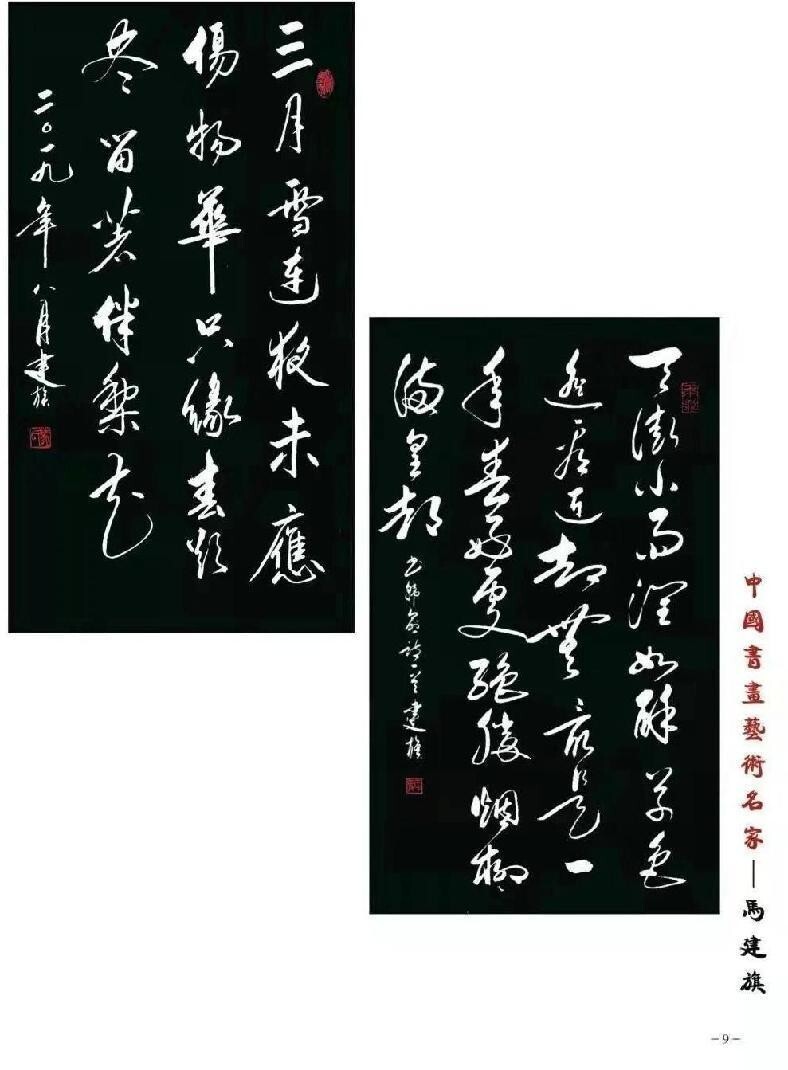 三月雪連夜未應
傷物華只緣春欲
盡留著伴梨花
二〇一九年八月建旗
天街小雨潤如酥草色
遙看近却無最是一
年春好處絕勝烟柳
滿皇都
書韓愈詩一首建旗
中國書畫藝術名家—馬建旗
-9-